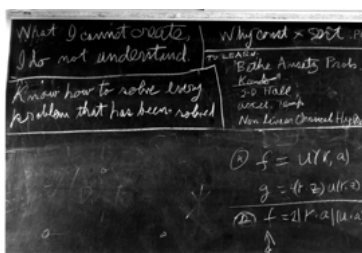 What I cannot create,
I do not understand.
Know how to solve every
problem that has been solved
Why const × sort. P
TO LEARN:
Bethe Ansatz Prob.
Kondo
2-D Hall
accel. temp
Non Linear Classical Hydro
(A) f = u(r, a)
g = (r z) u(r, z)
(B) f = 2|r·a|(u·a)